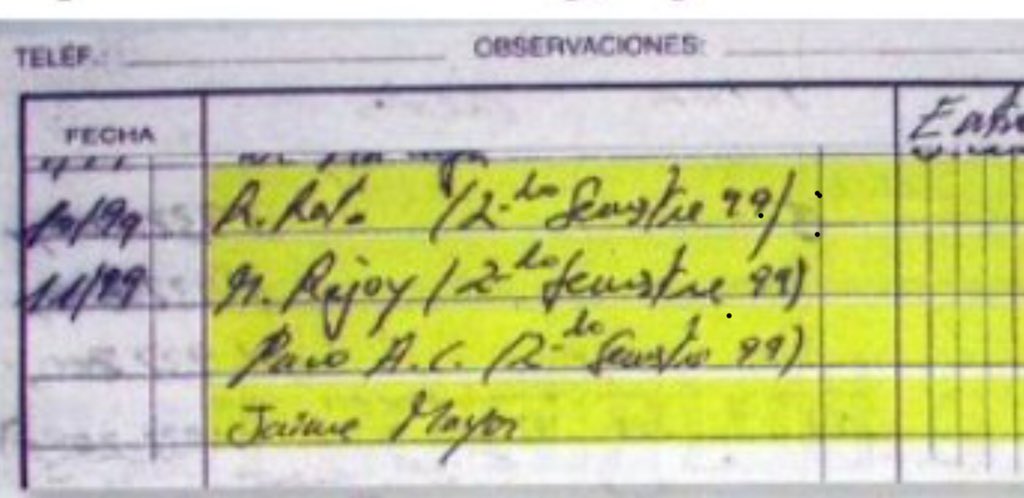 TELÉF.: OBSERVACIONES:
FECHA
10/99 R. Rato (2-do Semestre 99)
11/99 M. Rajoy (2-do Semestre 99)
Paco A.C. (2-do Semestre 99)
Jaime Mayor